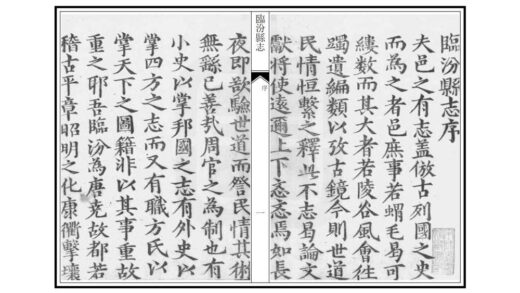 臨汾縣志序
夫邑之有志盖倣古列國之史
而為之者邑庶事若蝟毛曷可
縷數而其大者若陵谷風會往
躅遺編類以攷古鏡今則世道
民情恒繫之釋此不志曷論文
獻將使遠邇上下忞忞焉如長
臨汾縣志
序
一
夜即欲驗世道而詧民情其術
無繇已善哉周官之為制也有
小史以掌邦國之志有外史以
掌四方之志而又有職方氏以
掌天下之圖籍非以其事重故
重之耶吾臨汾為唐堯故都若
稽古平章昭明之化康衢擊壤